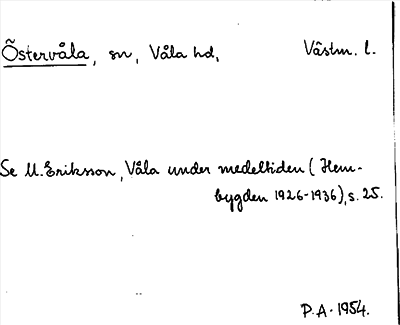 Östervåla, sn, Våla hd, Västm. l.
Se M. Eriksson, Våla under medeltiden (Hem-
bygden 1926-1936), s. 25.
P.A. 1954.